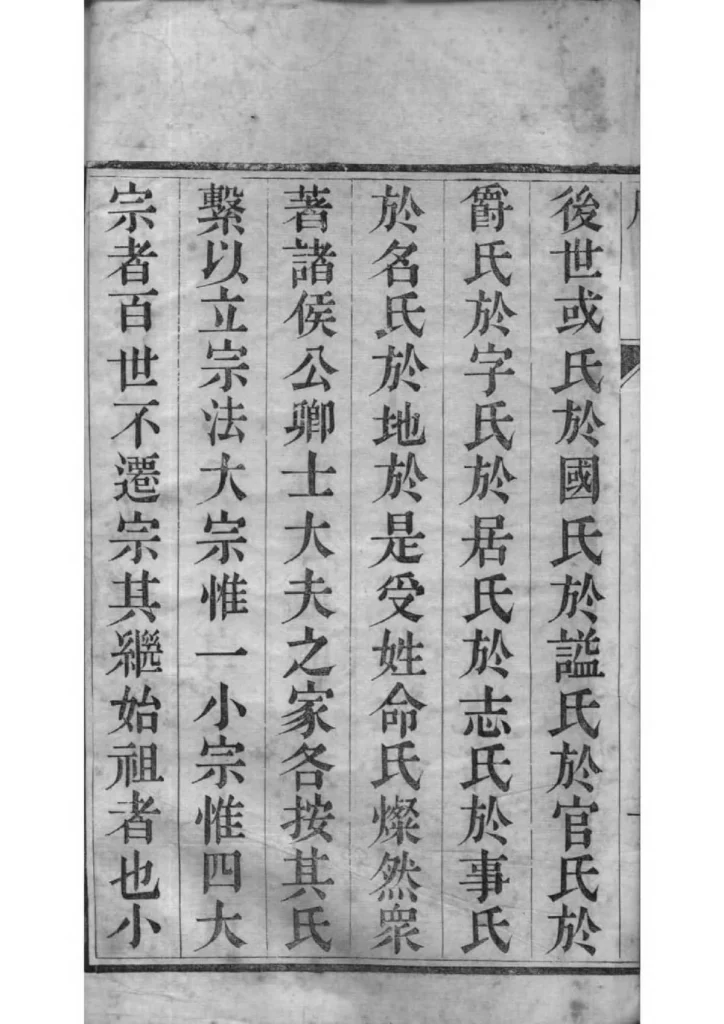 後世或氏於國氏於謚氏於官氏於
爵氏於字氏於居氏於志氏於事氏
於名氏於地於是受姓命氏燦然衆
著諸侯公卿士大夫之家各按其氏
繫以立宗法大宗惟一小宗惟四大
宗者百世不遷宗其繼始祖者也小